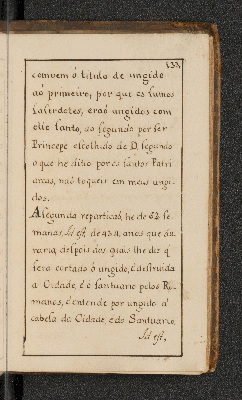 133
convem ò titulo de ungido
ao primeiro, por que os sumos
sacerdotes, eraõ ungidos com
olio santo, ao segundo por ser
Principe escolhido de D. segundo
o que he dito por os santos Patri
arcas, naõ toqueis em meus ungi
dos.
A segunda repartiçaõ, he de 62 se
manas id est, de 434, anos que du
raria, despois dos quais lhe diz q
sera cortado ò ungido, è destruida
a Cidade, è ò santuario pelos Ro
manos, è entende por ungido a'
cabesa da Cidade, è do Santuario,
id est,